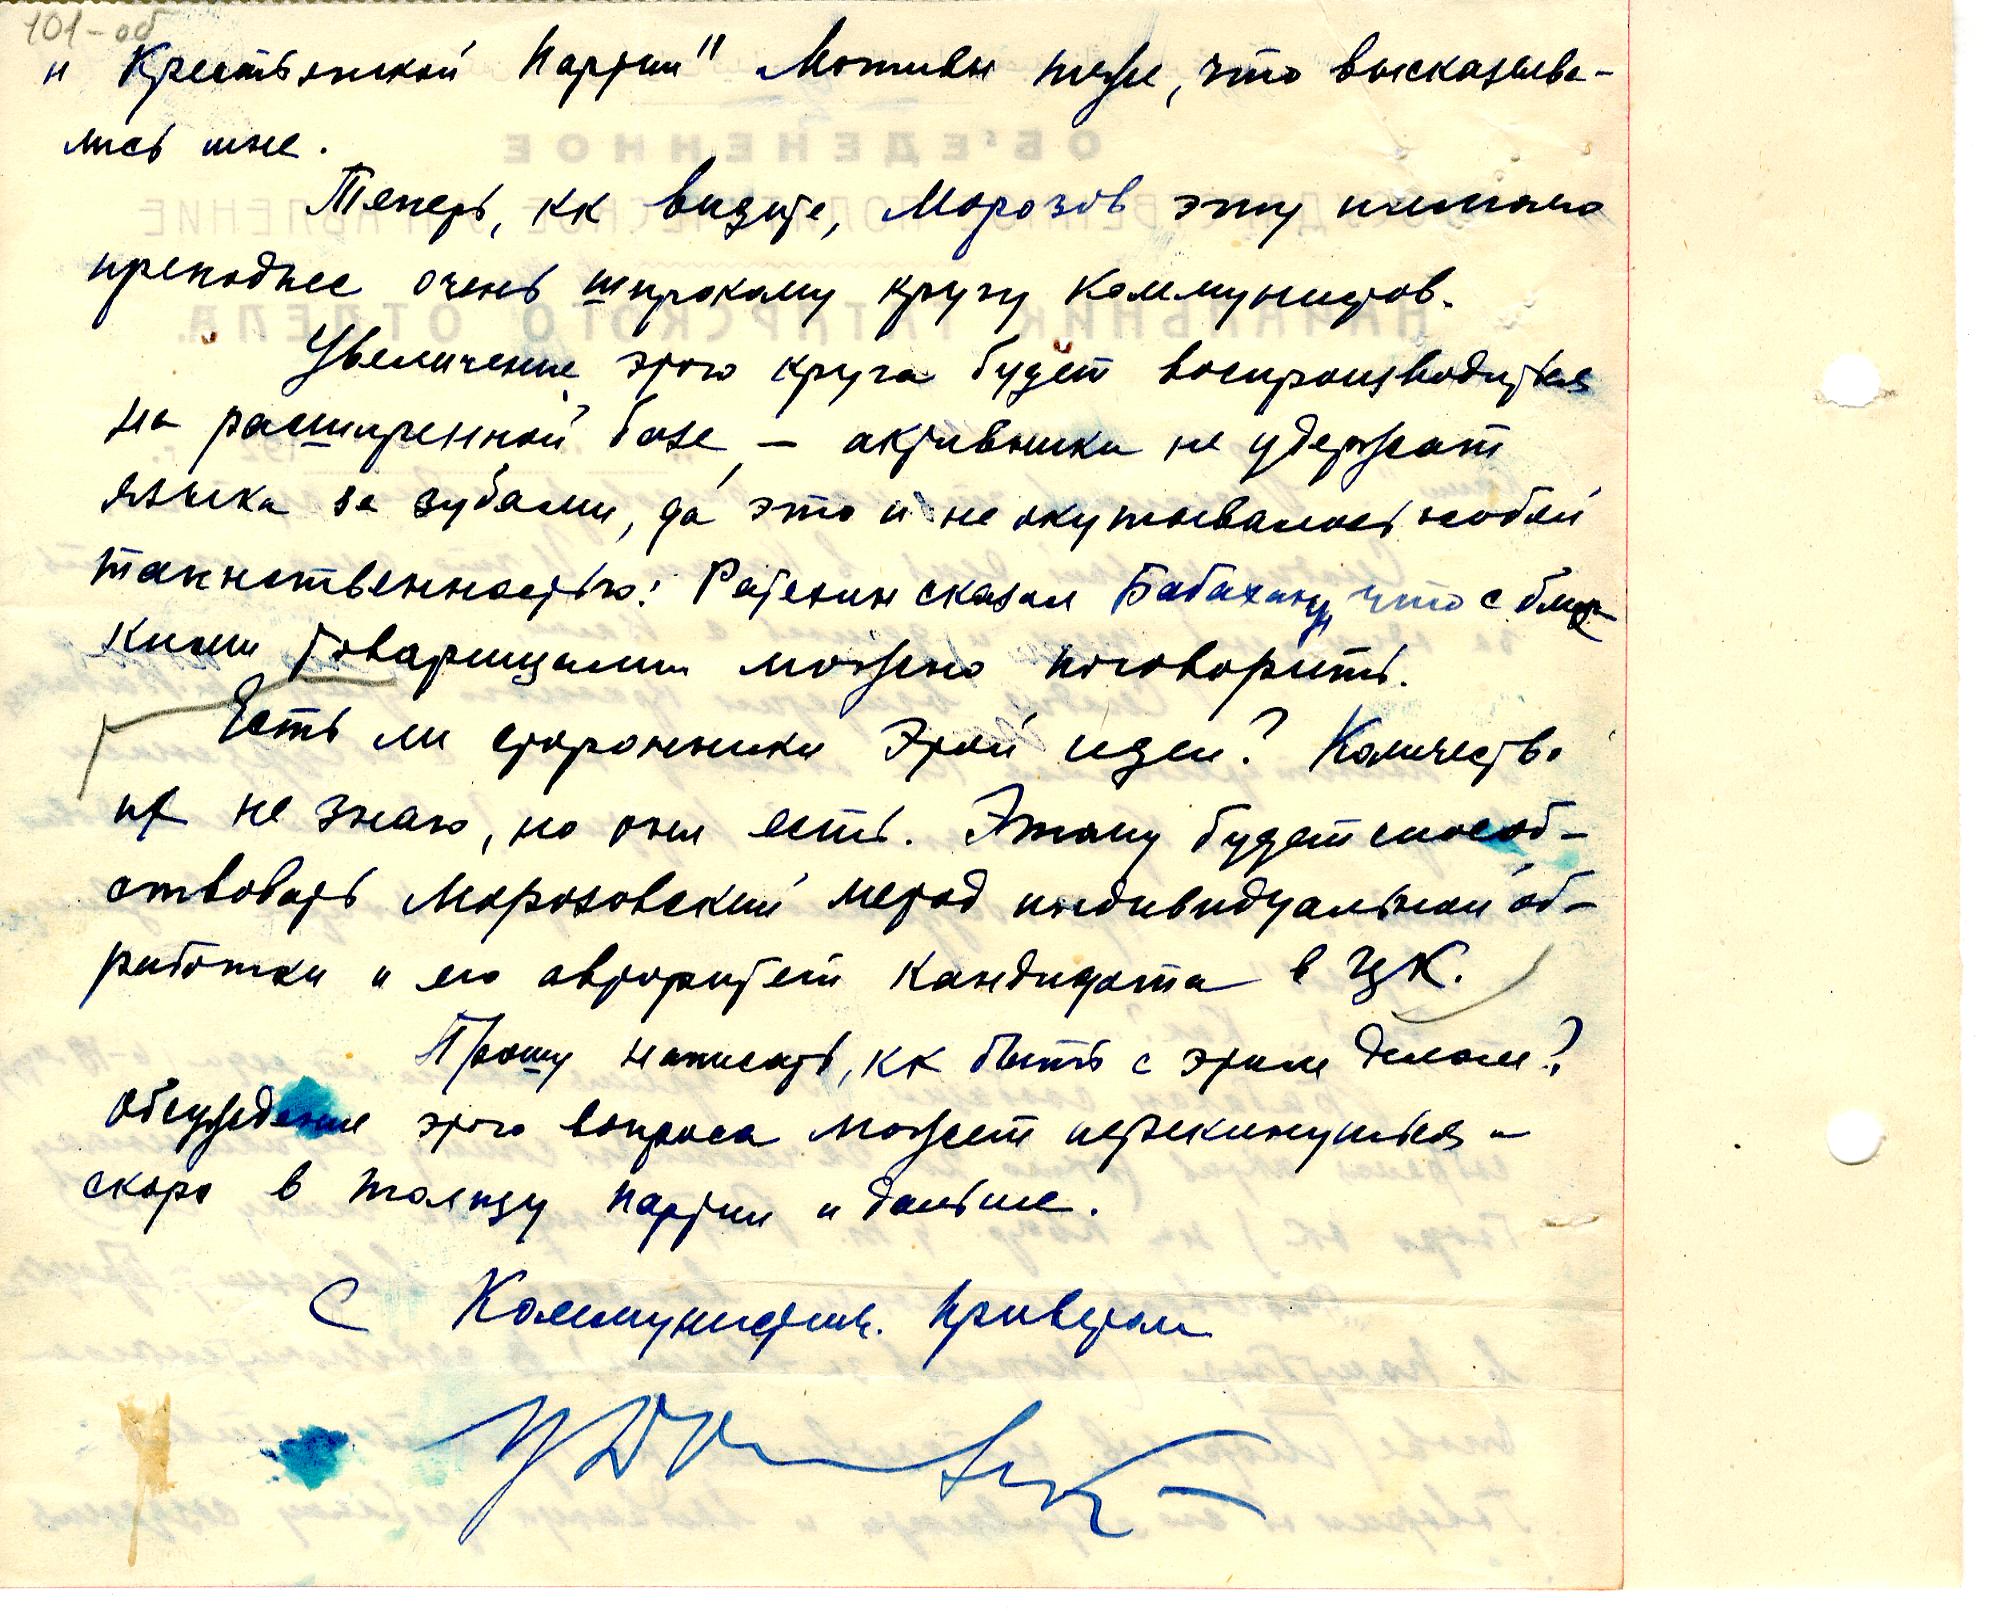 101-об
и Крестьянской Партии" Мотивы те же, что высказыва-
лись мне.
Теперь, кк видите, Морозов эту
преподнес очень широкому кругу коммунистов.
Увеличение этого круга будет воспроизводиться
на расширенной базе, – активники не удержат
языка за зубами, да это и не окутывалось особой
таинственностью: Ратенин сказал Бабаханцу что с близ-
кими товарищами можно поговорить.
Есть ли сторонники этой идеи? Количество
их не знаю, но они есть. Этому будет способ-
ствовать Морозовский метод индивидуальной об-
работки и его авторитет кандидата в ЦК.
Прошу написать, кк быть с этим делом?
Обсуждение этого вопроса может перекинуться –
скоро в толщу партии и дальше.
С Коммунистич. приветом
ОБ'ЕДЕНЕННОЕ
НАЧАЛЬНИК ТАТАРСКОГО ОТДЕЛА.